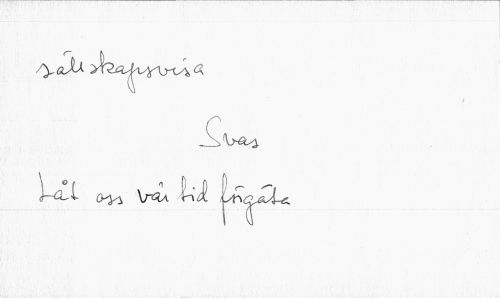 sällskapsvisa
Svas
Låt oss vår tid förgäta